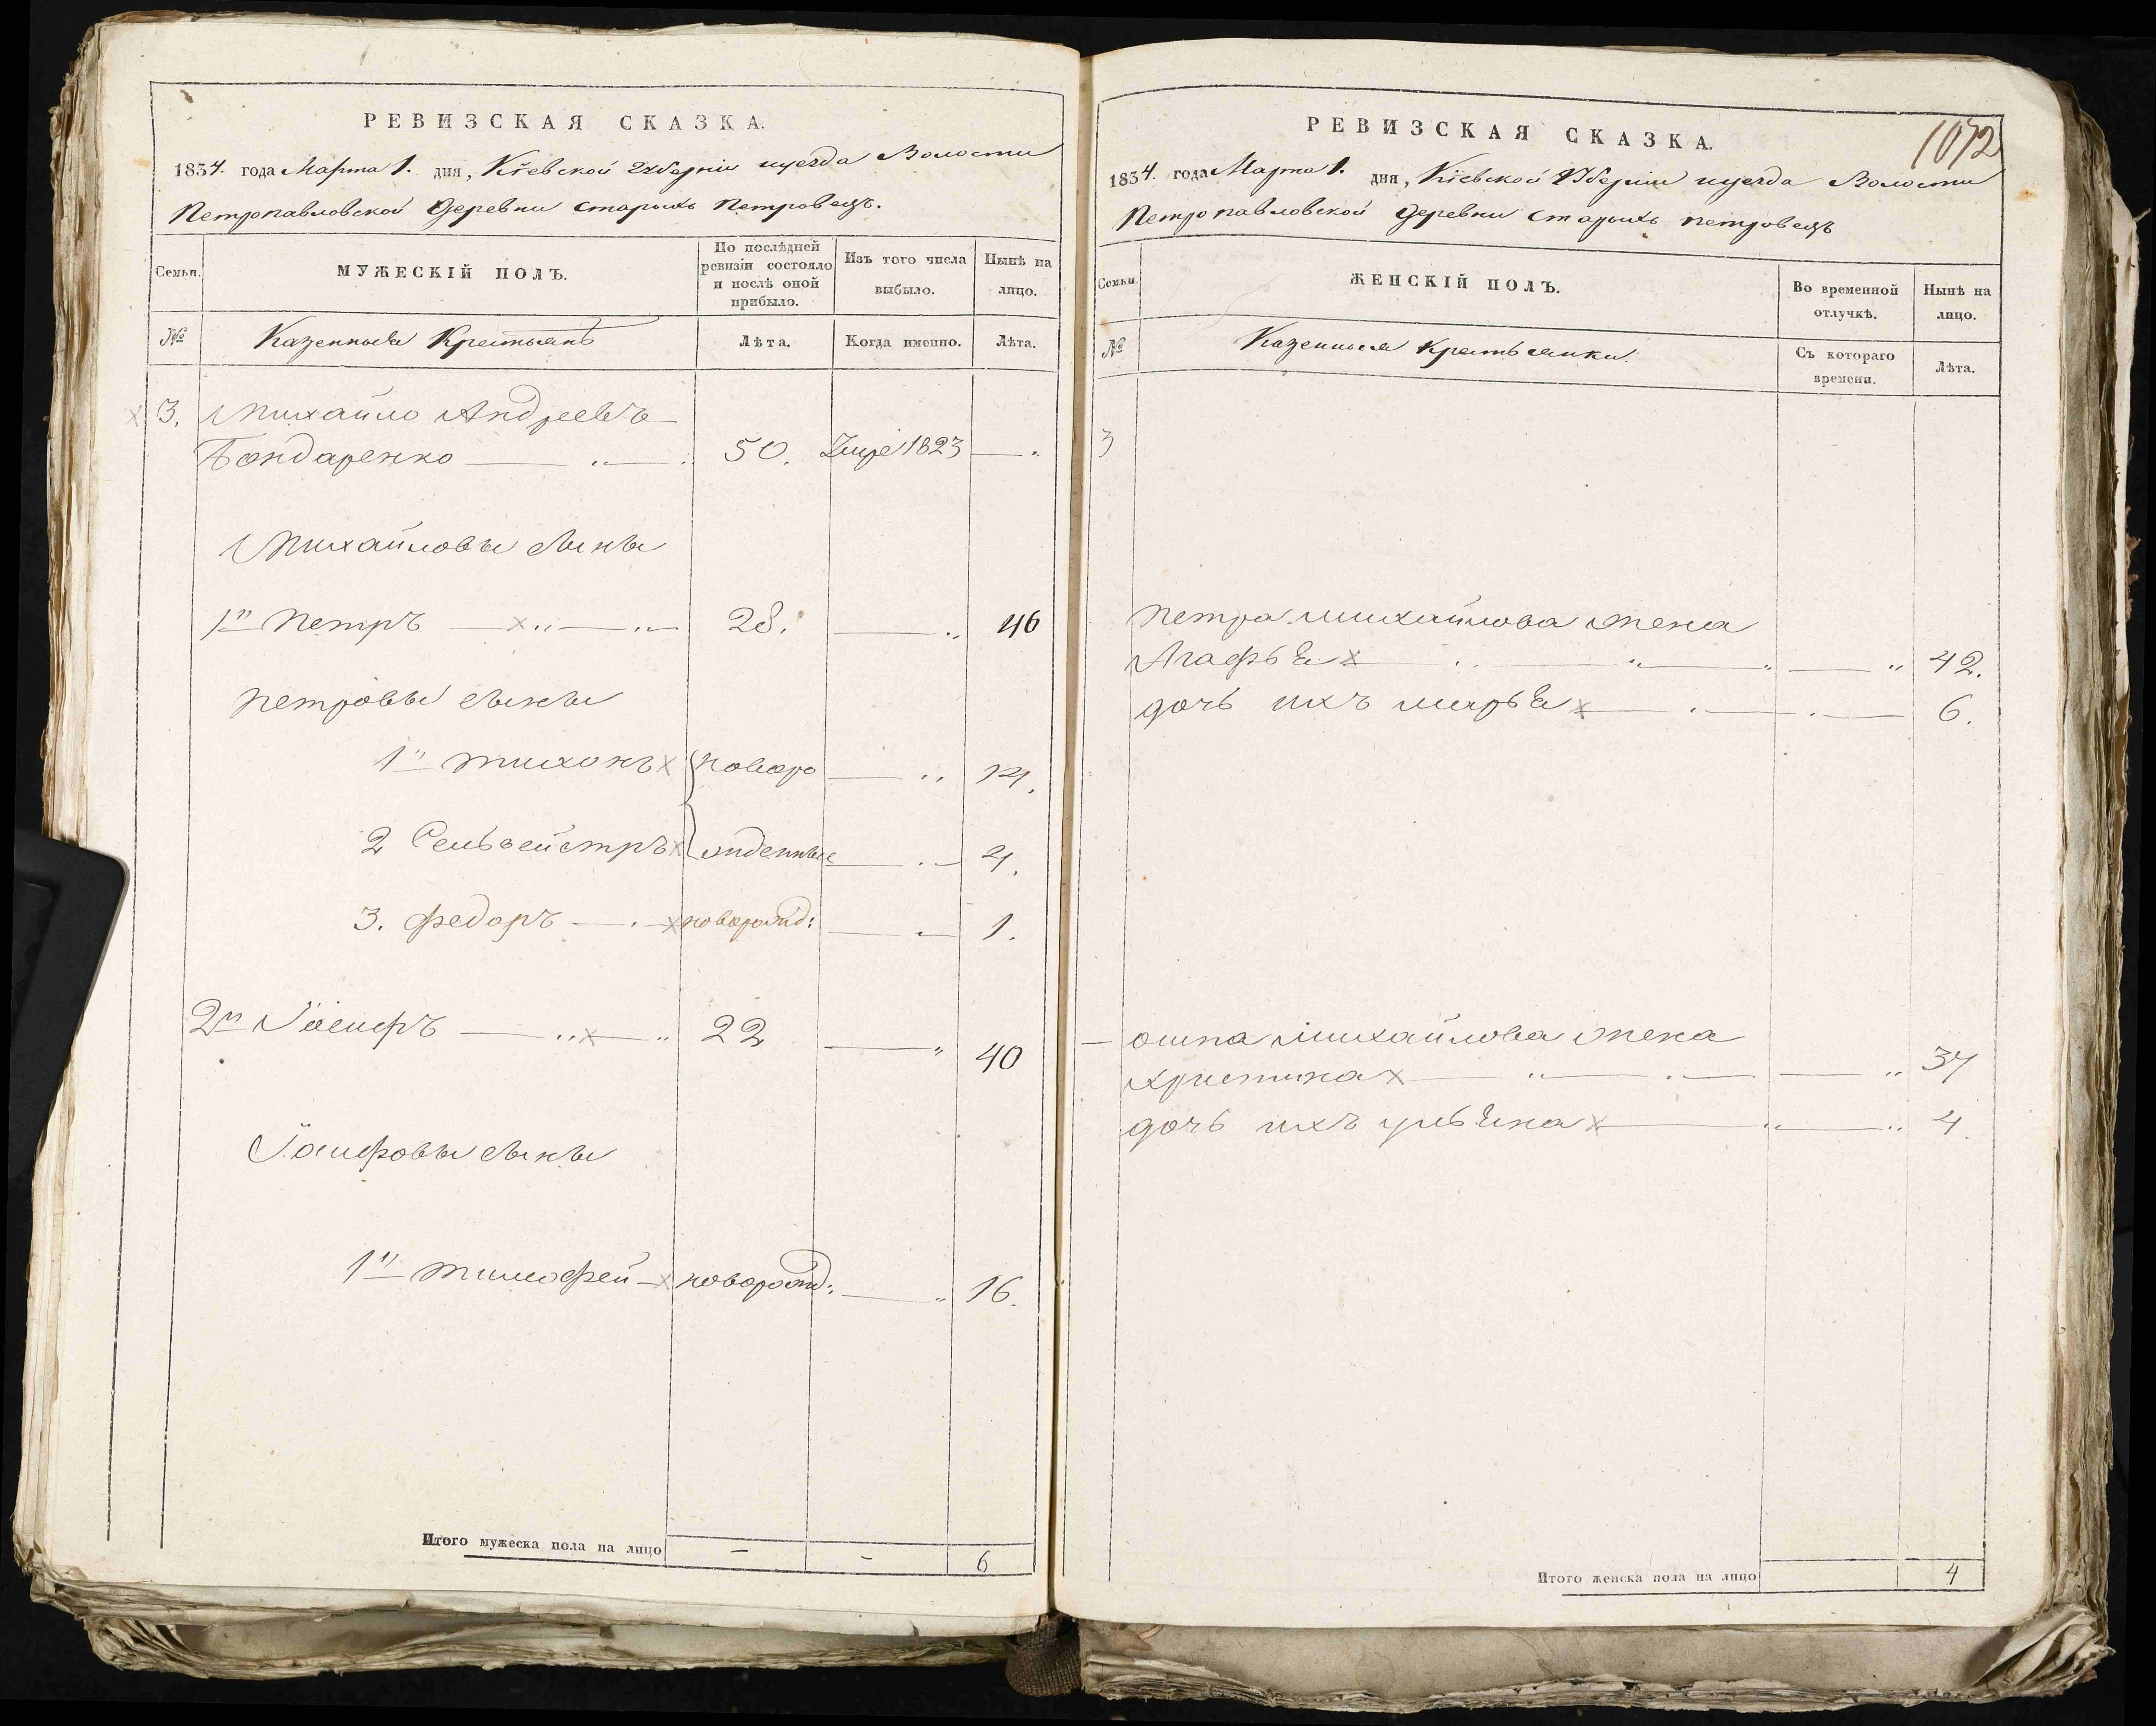 РЕВИЗСКАЯ СКАЗКА.
1834. года Марта 1. дня, Кіевской губерніи и уезда Волости
Петропавловской Деревни Старыхъ Петровецъ.
Семьи.
МУЖЕСКІЙ ПОЛЪ.
По послѣдней ревизіи состояло и послѣ оной прибыло.
Изъ того числа выбыло.
Нынѣ на лицо.
№
Казенные Крестьянѣ
Лѣта.
Когда именно.
Лѣта.
3. Михайло Андреевъ
Бондаренко 50. 1823
Михайловы сыны
1й Петръ 28. 46
Петровы сыны
1й Тихонъ новоро 14.
2 Сельвейстръ жденные 4.
3. Федоръ новорожд: 1.
2й Іосифъ 22 40
Іосифовы сыны
1й Тимофей новорожд: 16.
Итого мужеска пола на лицо - - 6
1072
РЕВИЗСКАЯ СКАЗКА.
1834. года Марта 1. дня, Кіевской Губерніи и уезда Волости
Петропавловской Деревни Старыхъ Петровецъ
Семьи.
ЖЕНСКІЙ ПОЛЪ.
Во временной отлучкѣ.
Нынѣ на лицо.
№
Казенныя Крестьянки.
Съ котораго времени.
Лѣта.
3
Петра Михайлова жена
Агафья 42.
дочь ихъ Марья 6.
Осипа Михайлова жена
Христина 37
дочь ихъ Ульяна 4.
Итого женска пола на лицо 4